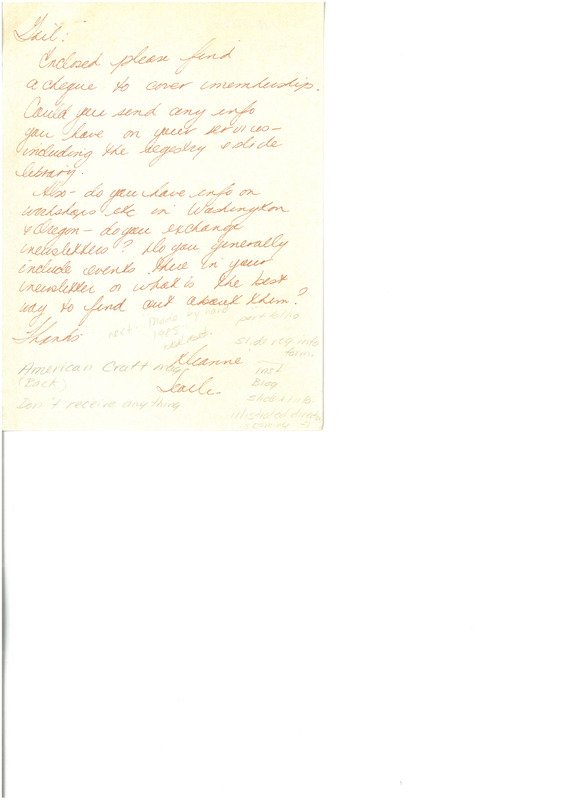 Gail:
Enclosed please find
a cheque to cover membership.
Could you send any info
you have on your services-
including the regestry & slide
library.
Also- do you have info on
workshops etc in Washington
& Oregon- do you exchange
newsletters? Do you generally
include events there in your
newsletter or what is the best
way to find out about them?
Thanks
made by hand
portfolio
slide reg info
form
American Craft mag
(Back)
Don't receive anything